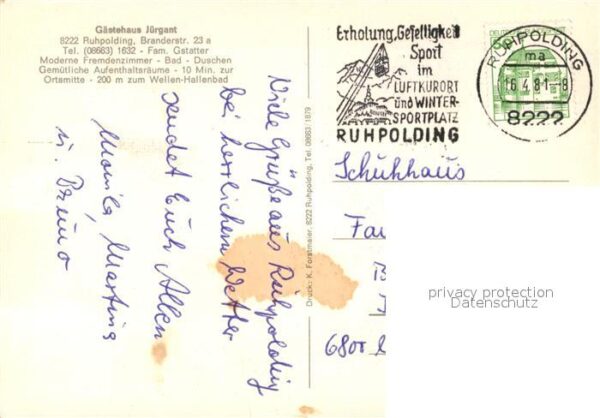 Gästehaus Jürgant
8222 Ruhpolding, Branderstr. 23 a
Tel. (08663) 1632 - Fam. Gstatter
Moderne Fremdenzimmer - Bad - Duschen
Gemütliche Aufenthaltsräume - 10 Min. zur
Ortsmitte - 200 m zum Wellen-Hallenbad
Viele Grüße aus Ruhpolding
bei herrlichem Wetter
sendet Euch Allen
Monika, Martina
u. Bruno
Druck: K. Forstmaier, 8222 Ruhpolding, Tel. 08663/1879
Erholung, Geselligkeit
Sport
im
LUFTKURORT
und WINTER-
SPORTPLATZ
RUHPOLDING
RUHPOLDING
ma
16.4.81-8
8222
Schuhhaus
Fa
6800
privacy protection
Datenschutz